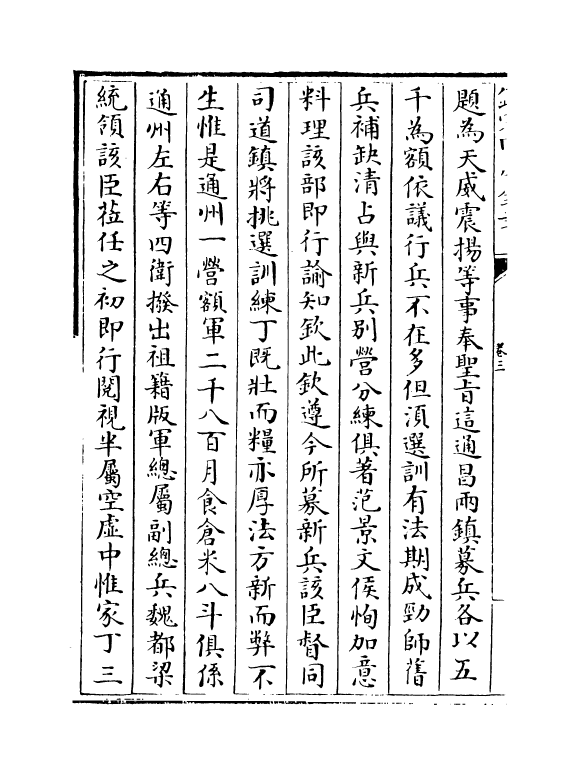 題為天威震揚等事奉聖旨這通昌兩鎮募兵各以五
千為額依議行兵不在多但須選訓有法期成勁師舊
兵補缺清占與新兵别營分練俱著范景文侯恂加意
料理該部即行諭知欽此欽遵今所募新兵該臣督同
司道鎮將挑選訓練丁既壯而糧亦厚法方新而弊不
生惟是通州一營額軍二千八百月食倉米八斗俱係
通州左右等四衛撥出祖籍版軍總屬副總兵魏都梁
統領該臣蒞任之初即行閱視半屬空虛中惟家丁三
卷三